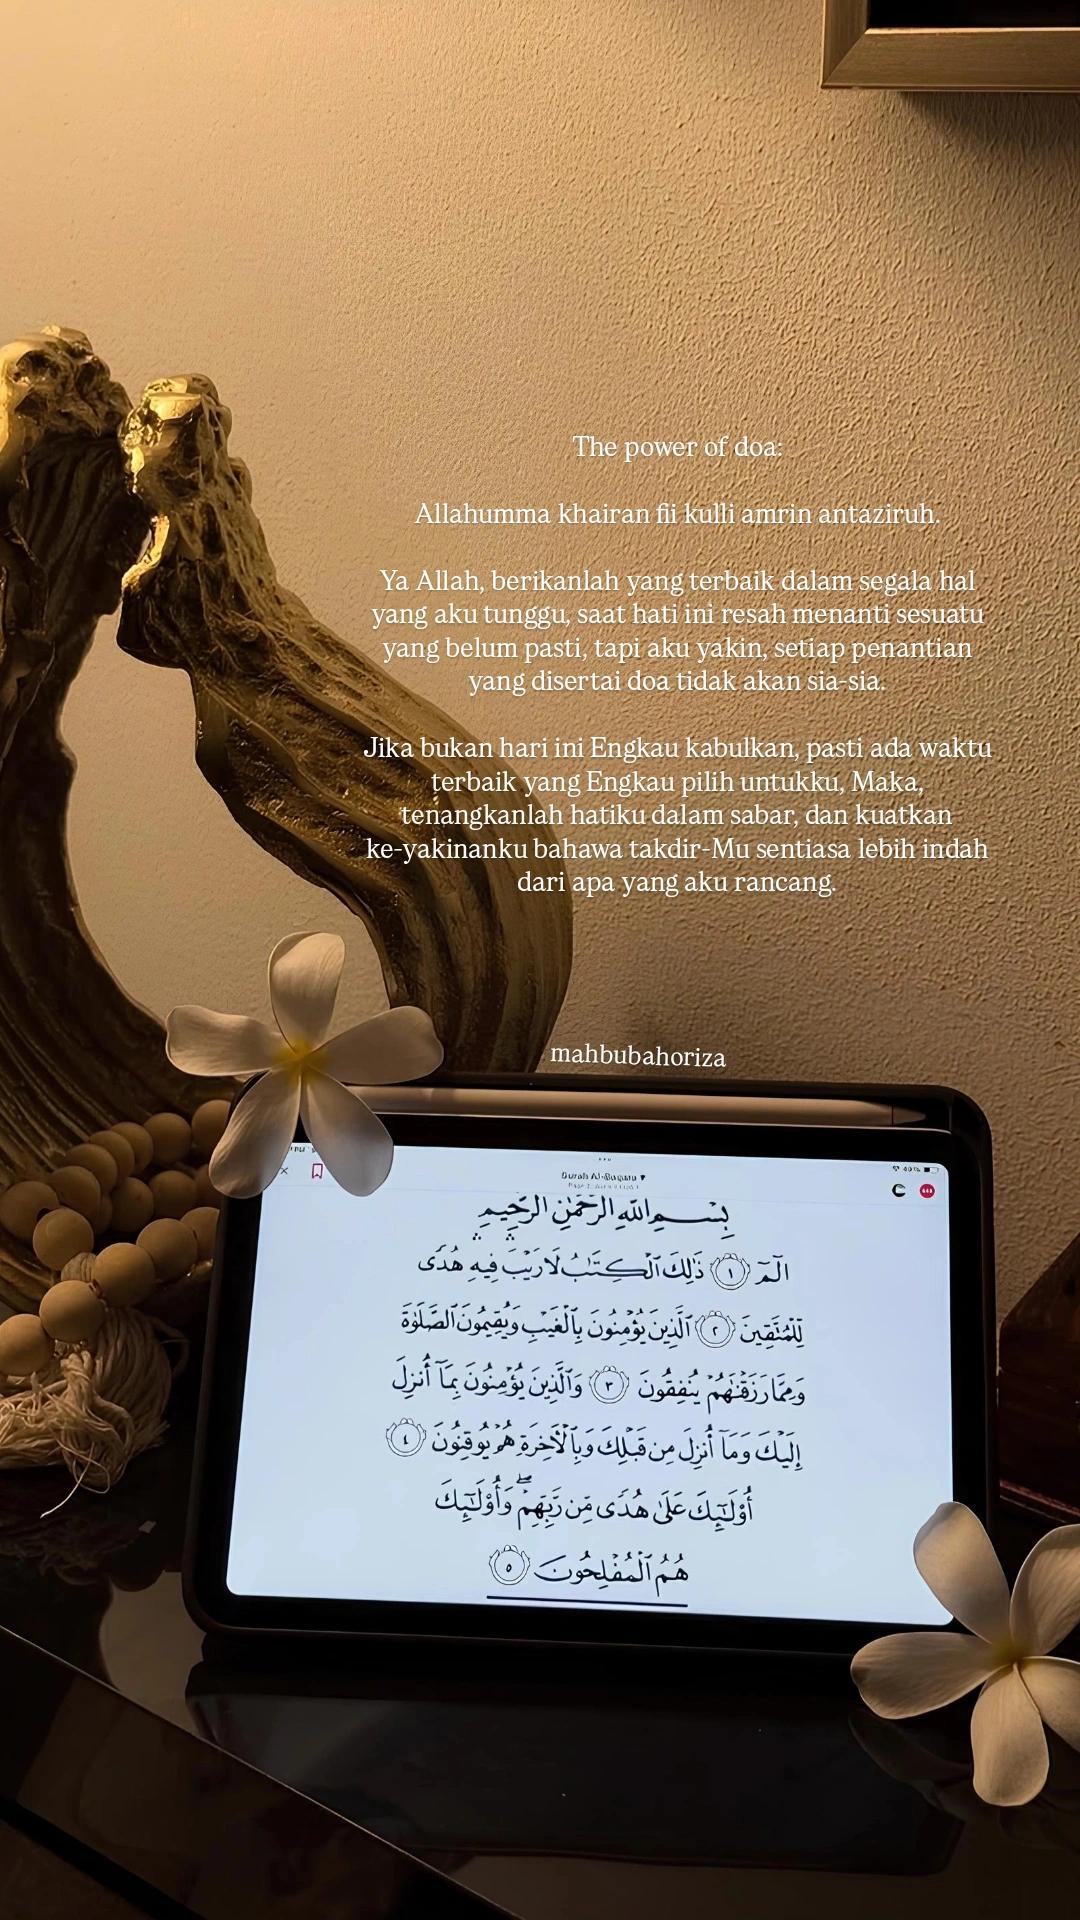 The power of doa:
Allahumma khairan fii kulli amrin antaziruh.
Ya Allah, berikanlah yang terbaik dalam segala hal
yang aku tunggu, saat hati ini resah menanti sesuatu
yang belum pasti, tapi aku yakin, setiap penantian
yang disertai doa tidak akan sia-sia.
Jika bukan hari ini Engkau kabulkan, pasti ada waktu
terbaik yang Engkau pilih untukku, Maka,
tenangkanlah hatiku dalam sabar, dan kuatkan
ke-yakinanku bahawa takdir-Mu sentiasa lebih indah
dari apa yang aku rancang.
mahbubahoriza
Surah Al-Baqara
بِسْمِ اللَّهِ الرَّحْمَٰنِ الرَّحِيمِ
الٓمٓ ١ ذَٰلِكَ ٱلْكِتَٰبُ لَا رَيْبَ ۛ فِيهِ ۛ هُدًى
لِّلْمُتَّقِينَ ٢ ٱلَّذِينَ يُؤْمِنُونَ بِٱلْغَيْبِ وَيُقِيمُونَ ٱلصَّلَوٰةَ
وَمِمَّا رَزَقْنَٰهُمْ يُنفِقُونَ ٣ وَٱلَّذِينَ يُؤْمِنُونَ بِمَآ أُنزِلَ
إِلَيْكَ وَمَآ أُنزِلَ مِن قَبْلِكَ وَبِٱلْأَخِرَةِ هُمْ يُوقِنُونَ ٤
أُو۟لَٰٓئِكَ عَلَىٰ هُدًى مِّن رَّبِّهِمْ ۖ وَأُو۟لَٰٓئِكَ
هُمُ ٱلْمُفْلِحُونَ ٥